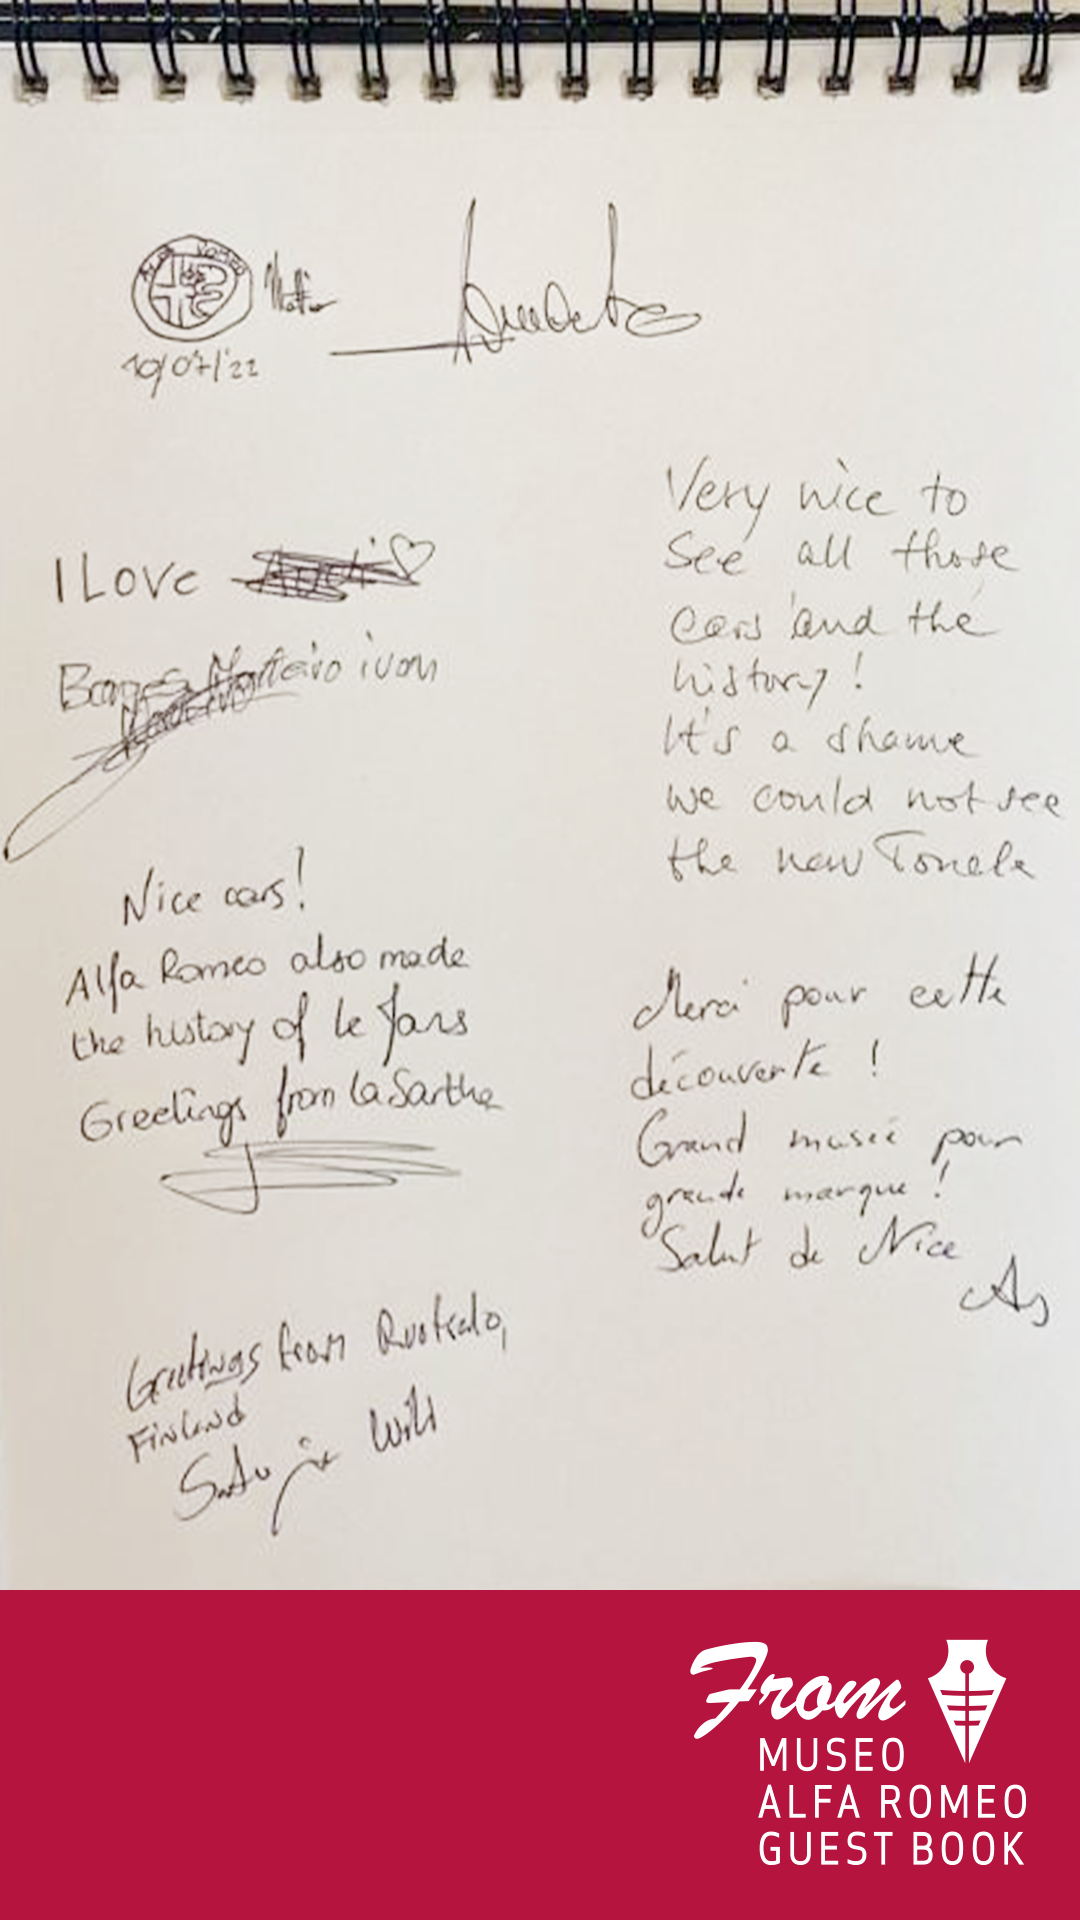 ALFA ROMEO
10/07/'22
I LOVE
ivan
Nice cars!
Alfa Romeo also made
the history of le Mans
Greetings from la Sarthe
Greetings from
Finland
Satu ja Will
Very nice to
see all those
cars and the
history!
It's a shame
we could not see
the new Tonale
Merci pour cette
découverte !
Grand musée pour
grande marque !
Salut de Nice
From
MUSEO
ALFA ROMEO
GUEST BOOK